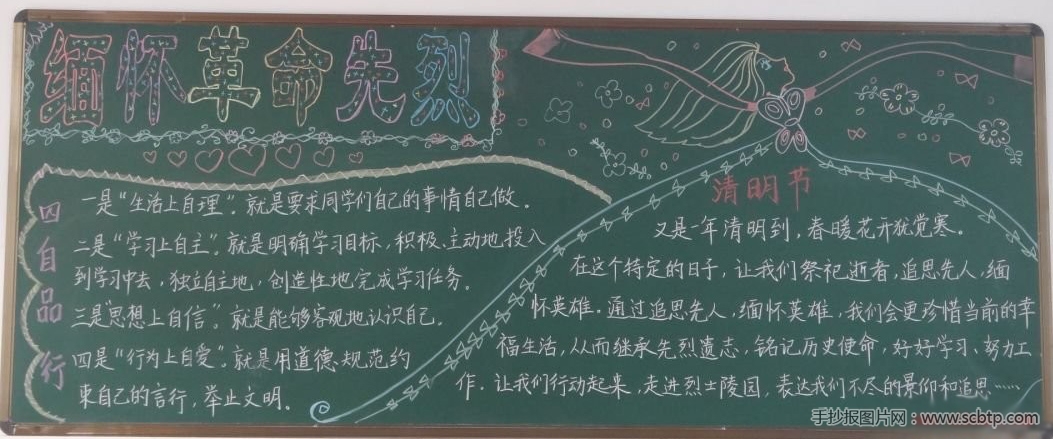 缅怀革命先烈
四自品行
一是“生活上自理”。就是要求同学们自己的事情自己做。
二是“学习上自主”。就是明确学习目标，积极、主动地投入
到学习中去，独立自主地，创造性地完成学习任务。
三是“思想上自信”。就是能够客观地认识自己。
四是“行为上自爱”。就是用道德、规范约
束自己的言行，举止文明。
清明节
又是一年清明到，春暖花开犹觉寒。
在这个特定的日子，让我们祭祀逝者，追思先人，缅
怀英雄。通过追思先人，缅怀英雄，我们会更珍惜当前的幸
福生活，从而继承先烈遗志，铭记历史使命，好好学习、努力工
作。让我们行动起来，走进烈士陵园，表达我们不尽的景仰和追思……
手抄报图片网：www.scbtp.com